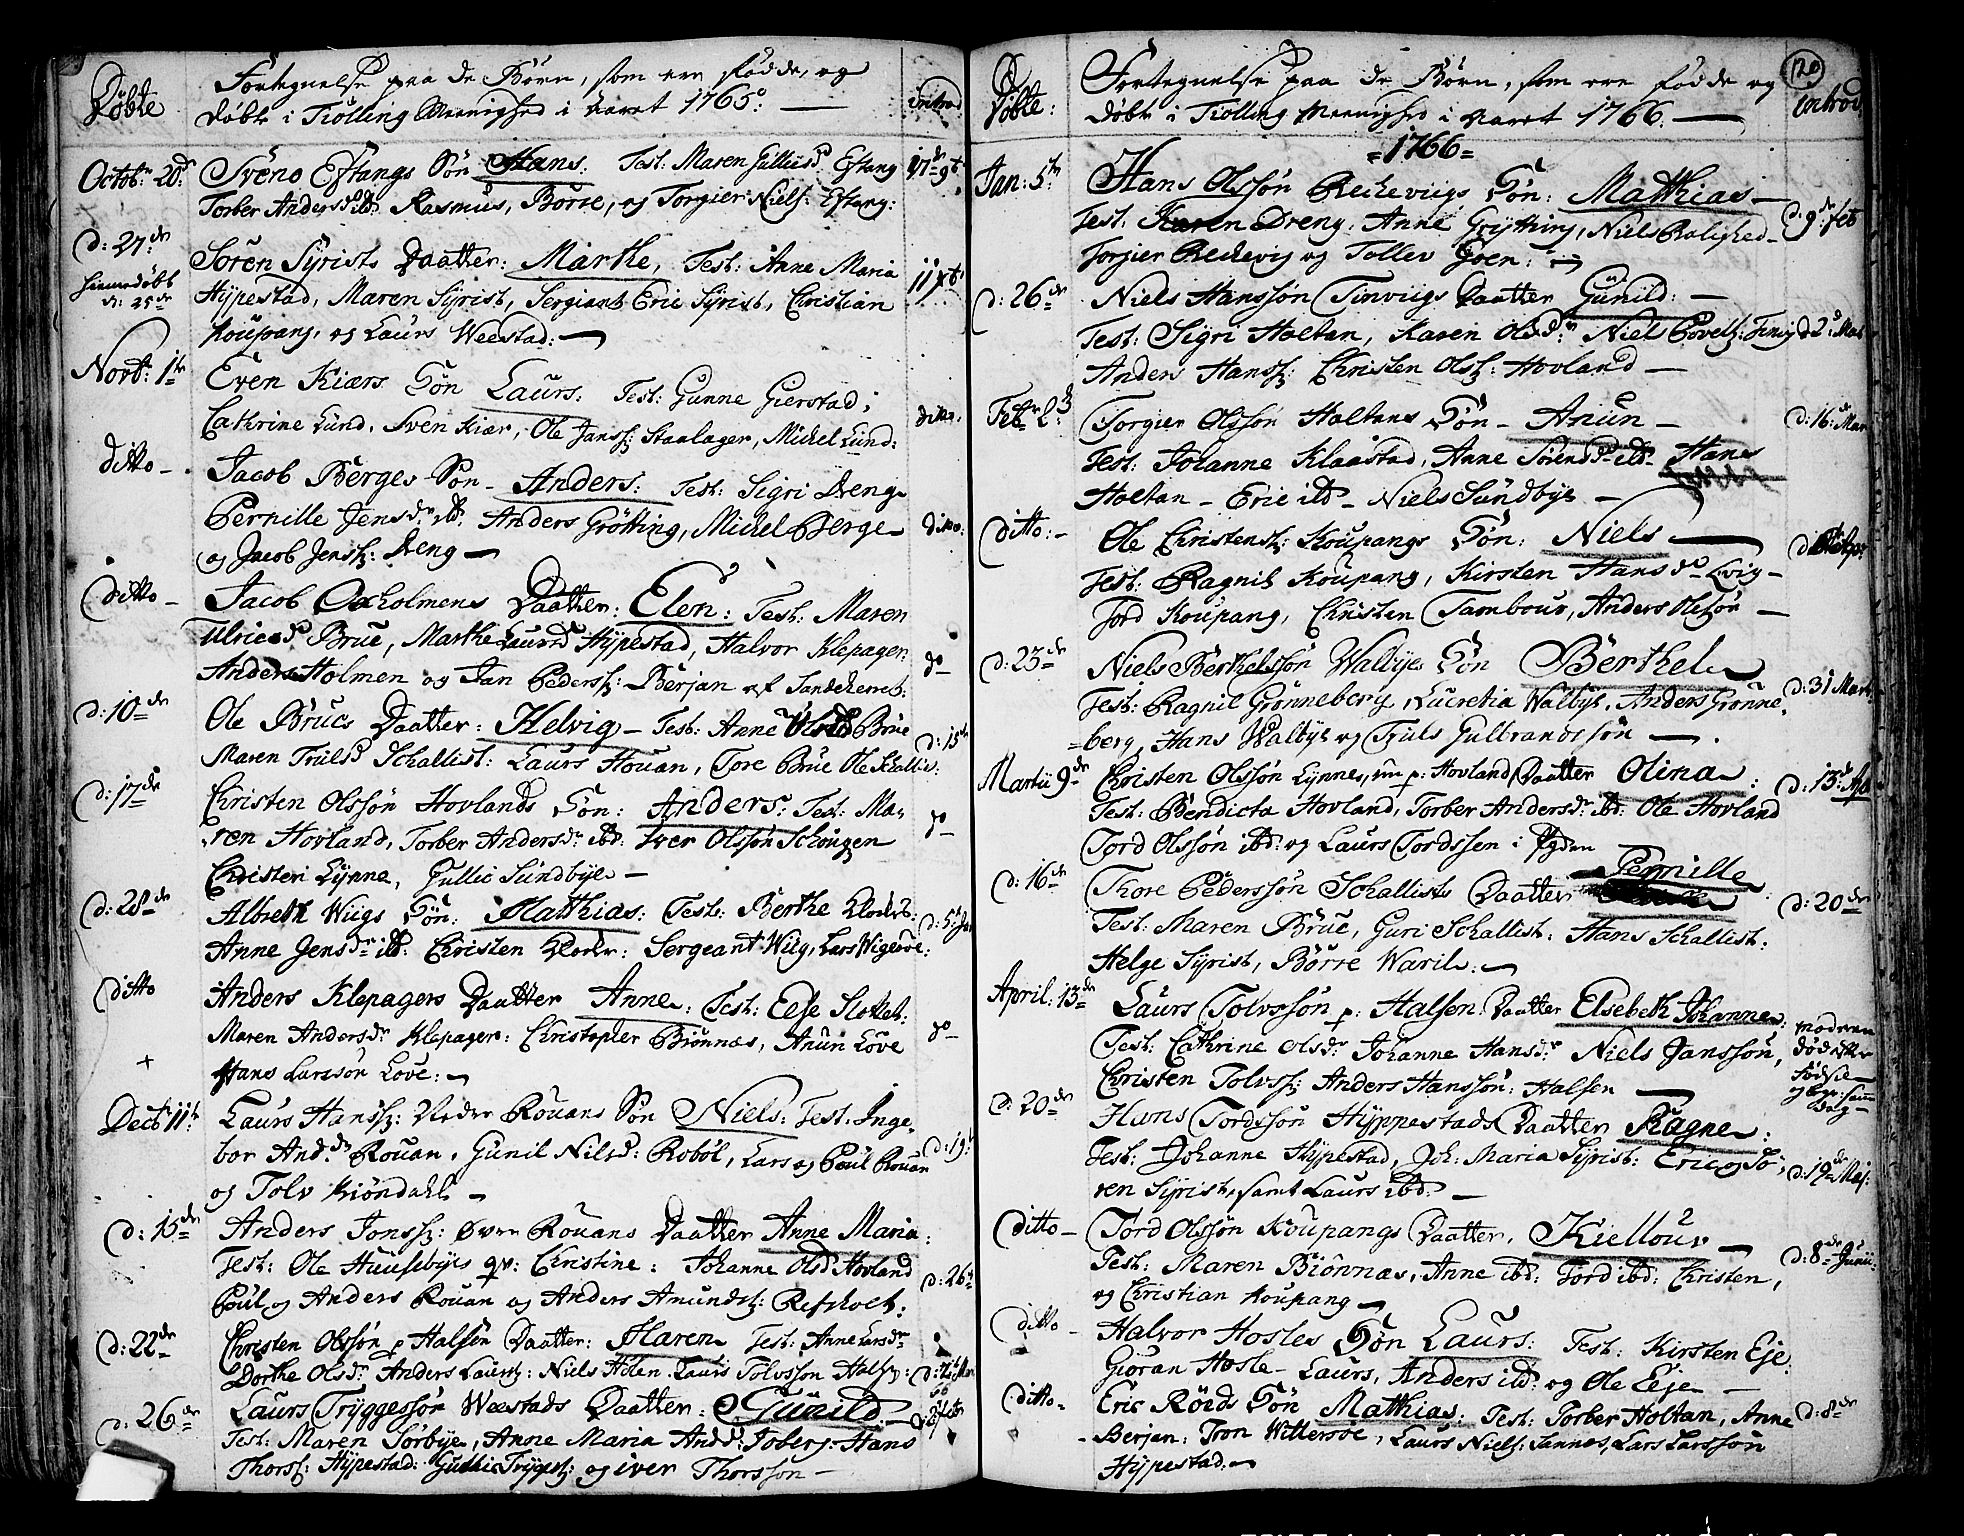 Döbte
Fortegnelse paa de Börn, som ere födde, og
döbte i Tiölling Meenighed i Aaret 1765. —
introd
Octob: 20de
Sveno Eftangs Sön Hans. Test: Maren Gulliksd. Eftang
17de 9b
Torber Andersd. ibd. Rasmus, Börre, og Torgier Niels: Eftang:
d: 27de
Sören Syrists Daatter: Marthe, Test: Anne Maria
hiemedöbt
d: 25de
Hÿpestad, Maren Sÿrist, Sergiant Eric Sÿrist, Christian
Koupang, og Laurs Weestad: —
Novb: 1te
Even Kiærs Sön Laurs: Test: Gunne Gierstad;
Cathrine Lund, Sven Kiær, Ole Janss: Staalager, Michel Lund:
ditto.
ditto —
Jacob Berges Sön — Anders: Test: Sigri Dreng
Pernille Jensdr. ibd. Anders Grötting, Michel Berge —
ditto:
og Jacob Jenss: Dreng —
ditto —
Jacob Oxholmens Daatter: Elen: Test: Maren
Ulricsd Brue, Marthe Laursd Hÿpestad, Halvor Klepager:
do —
Anders Holmen og Jan Pederss: Berjan af Sandeherret:
d: 10de
Ole Brues Daatter: Helvig — Test: Anne Olsd Brue
d: 15
Maren Trulsd Schallist: Laurs Houan, Tore Brue Ole Schallist:
d: 17de
Christen Olssön Hovlands Sön: Anders: Test: Ma=
=ren Hovland, Torber Andersdr. ibd: Iver Olssön Schougen
do —
Christen Lÿnne, Gullic Sundbÿe —
d: 28de
Albreth Wiigs Sön: Matthias: Test: Berthe Kloder:
d: 5 Ja
Anne Jensdr ibd: Christen Kloder: Sergeant Wiig, Lars Wigersöe:
ditto
Anders Klepagers Daatter Anne: Test: Eeje Slottet:
Maren Andersdr Klepager: Christopher Brönnæs, Anun Löve
do —
+
Hans Larssön Löve: —
Decb 11te
Laurs Hanss: Neder Rouans Sön Niels: Test: Inge=
bor Andd. Rouan, Gunil Nilsd: Roböl, Lars og Poul Rouan
d: 19
og Tolv Kiöndahl —
d: 15de
Anders Jonss: Över Rouans Daatter Anne Maria:
Test: Ole Huusebÿes qv: Christine: Johanne Olsd Hovland
d: 26
Poul og Anders Rouan og Anders Amundss: Refsholt:
d: 22de
Christen Olssön p Halsen Daatter: Maren Test: Anne Larsdr
Dorthe Olsdr. Anders Laurss: Niels Holen Laurs Tolvssön Halsen:
66
d: 26de
Laurs Trÿggessön Weestads Daatter: Gunild.
Test: Maren Sörbÿe, Anne Maria Andd: Joberg. Hans
Thorss: Hÿpestad: Guthic Trÿgss: og iver Thorssön —
120
Döbte:
Fortegnelse paa de Börn, som ere födde og
döbte i Tiölling Meenighed i Aaret 1766. —
introd
=1766=
Jan: 5te
Hans Olssön Rechevigs Sön: Matthias —
Test: Karen Dreng, Anne Grÿtting, Niels Ralighed —
d: 9de Feb
Torgier Rechevig og Tollev Goen: —
d: 26de
Niels Hanssön Tinvigs Daatter Gunild: —
Test: Sigri Holtan, Karen Olsdr. Niels Povelss: Tinvig
d 2d Mar
Anders Hanss: Christen Olss: Hovland —
Feb: 2d
Torgier Olssön Holtans Sön — Anun —
d: 16de Mar
Test: Johanne Klaastad, Anne Sörensdr ibd — Hans
Holtan — Eric ibd — Niels Sundbÿe —
ditto: —
Ole Christenss: Koupangs Sön: Niels —
Test: Ragnil Koupang, Kirsten Hansdr Evig —
Tord Koupang, Christen Tambour, Anders Olssön —
d: 23de
Niels Berthelssön Walbÿes Sön Berthel
d: 31 Mart
Test: Ragnil Grönneberg Lucretia Walbÿe, Anders Grönne=
=berg, Hans Walbÿe og Truls Gulbrandssön —
Martii 9de
Christen Olssön Lÿnnes, nu p: Hovland Daatter Olina:
d: 13de Ap
Test: Bendicta Hovland, Torber Andersdr. ibd: Ole Hovland
Tord Olssön ibd: og Laurs Tordssen i Ögden
d: 16de
Thore Pederssön Schallists Daatter Pernille
d: 20de
Test: Maren Brue, Guri Schallist: Hans Schallist:
Helge Sÿrist, Börre Waril: —
April: 13de
Laurs Tolvssön p: Halsen: Daatter Elsebeth Johanne:
Test: Cathrine Olsdr Johanne Hansdr Niels Janssön,
moderen
död efter
födsle
Christen Tolvss: Anders Hanssön: Halsen —
d: 20de
Hans Tordssön Hÿppestads Daatter Ragne:
Test: Johanne Hÿpestad, Joh: Maria Sÿrist: Eric og Sö=
d: 19de Maj:
ren Sÿrist, samt Laurs ibd: —
ditto —
Tord Olssön Koupangs Daatter, Kiellour —
d: 8de Junii:
Test: Maren Biönnæs, Anne ibd: Tord ibd: Christen,
og Christian Koupang —
ditto —
Halvor Hosles Sön Laurs: Test: Kirsten Eje
Giöran Hosle — Laurs, Anders ibd: og Ole Eeje —
ditto —
Eric Röeds Sön Matthias: Test: Torber Holtan, Anne
d: 8de
Berjan: Tron Wittersöe, Laurs Niels: Sannes, Lars Larssön
Hÿpestad: —